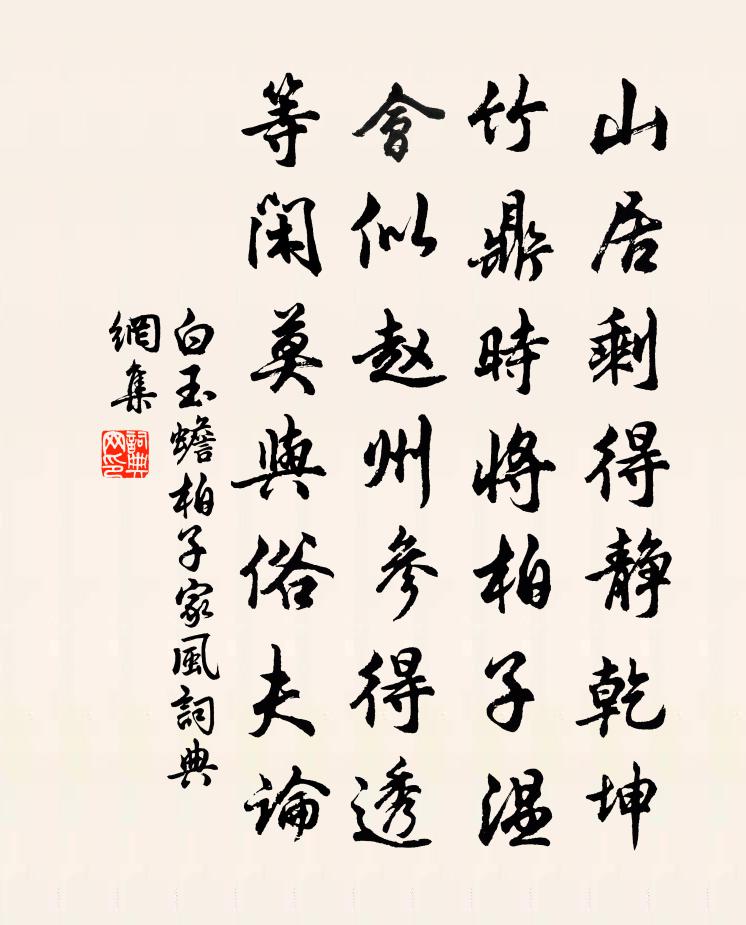 山居剩得靜乾坤
竹鼎時將柏子温
會似赵州參得透
等閑莫與俗夫論
白玉蟾柏子家風詞典
網集
詞典
网印